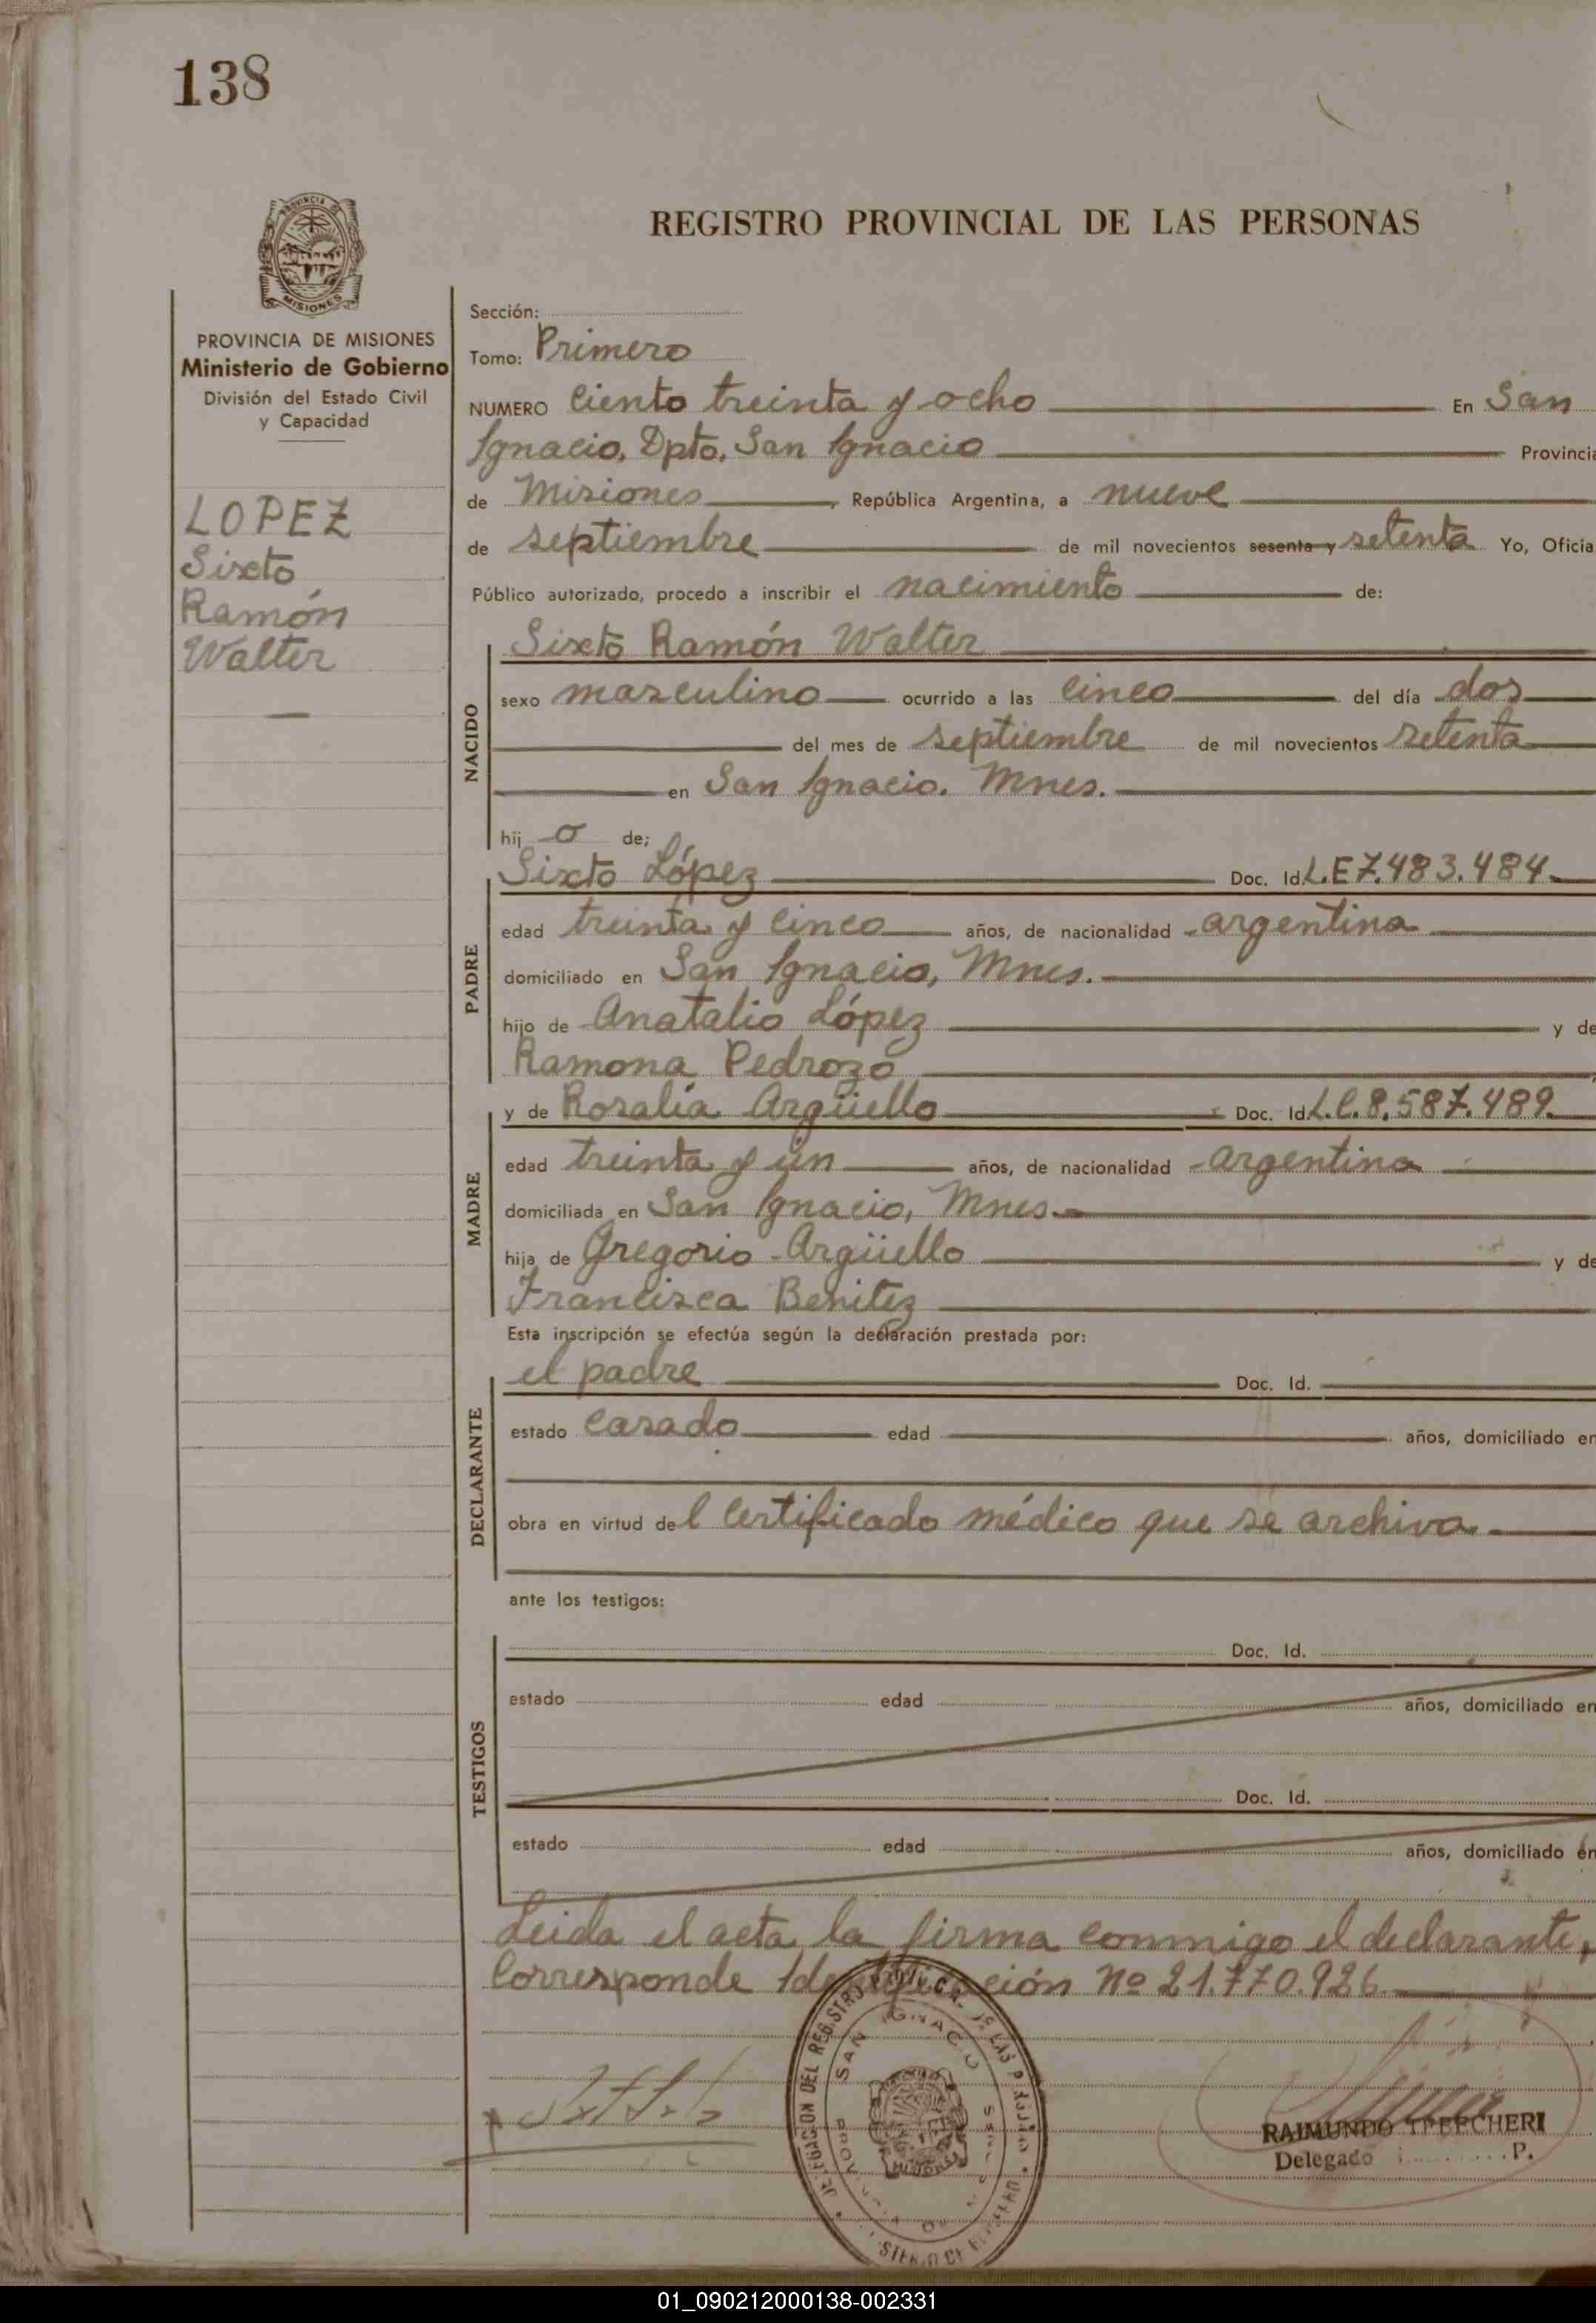 138
REGISTRO PROVINCIAL DE LAS PERSONAS
PROVINCIA DE MISIONES
Ministerio de Gobierno
División del Estado Civil
y Capacidad
LOPEZ
Sixto
Ramón
Walter
Sección:
Tomo: Primero
NUMERO Ciento treinta y ocho En San
Ignacio, Dpto. San Ignacio Provincia
de Misiones, República Argentina, a nueve
de septiembre de mil novecientos sesenta y setenta Yo, Oficia
Público autorizado, procedo a inscribir el nacimiento de:
NACIDO
Sixto Ramón Walter
sexo masculino ocurrido a las cinco del día dos
del mes de septiembre de mil novecientos setenta
en San Ignacio. Mnes.
hij o de;
PADRE
Sixto López Doc. Id. L.E 7.483.484.
edad treinta y cinco años, de nacionalidad argentina
domiciliado en San Ignacio, Mnes.
hijo de Anatalio López y de
Ramona Pedrozo
MADRE
y de Rosalía Argüello Doc. Id. L.C. 8.587.489.
edad treinta y un años, de nacionalidad argentina
domiciliada en San Ignacio, Mnes.
hija de Gregorio Argüello y de
Francisca Benitez
Esta inscripción se efectúa según la declaración prestada por:
DECLARANTE
el padre Doc. Id.
estado casado edad años, domiciliado en
obra en virtud del certificado médico que se archiva.
ante los testigos:
TESTIGOS
Doc. Id.
estado edad años, domiciliado en
Doc. Id.
estado edad años, domiciliado en
Leida el acta la firma conmigo el declarante,
Corresponde Identificación Nº 21.770.926
SAN IGNACIO
MISIONES
RAIMUNDO
Delegado P.
01_090212000138-002331